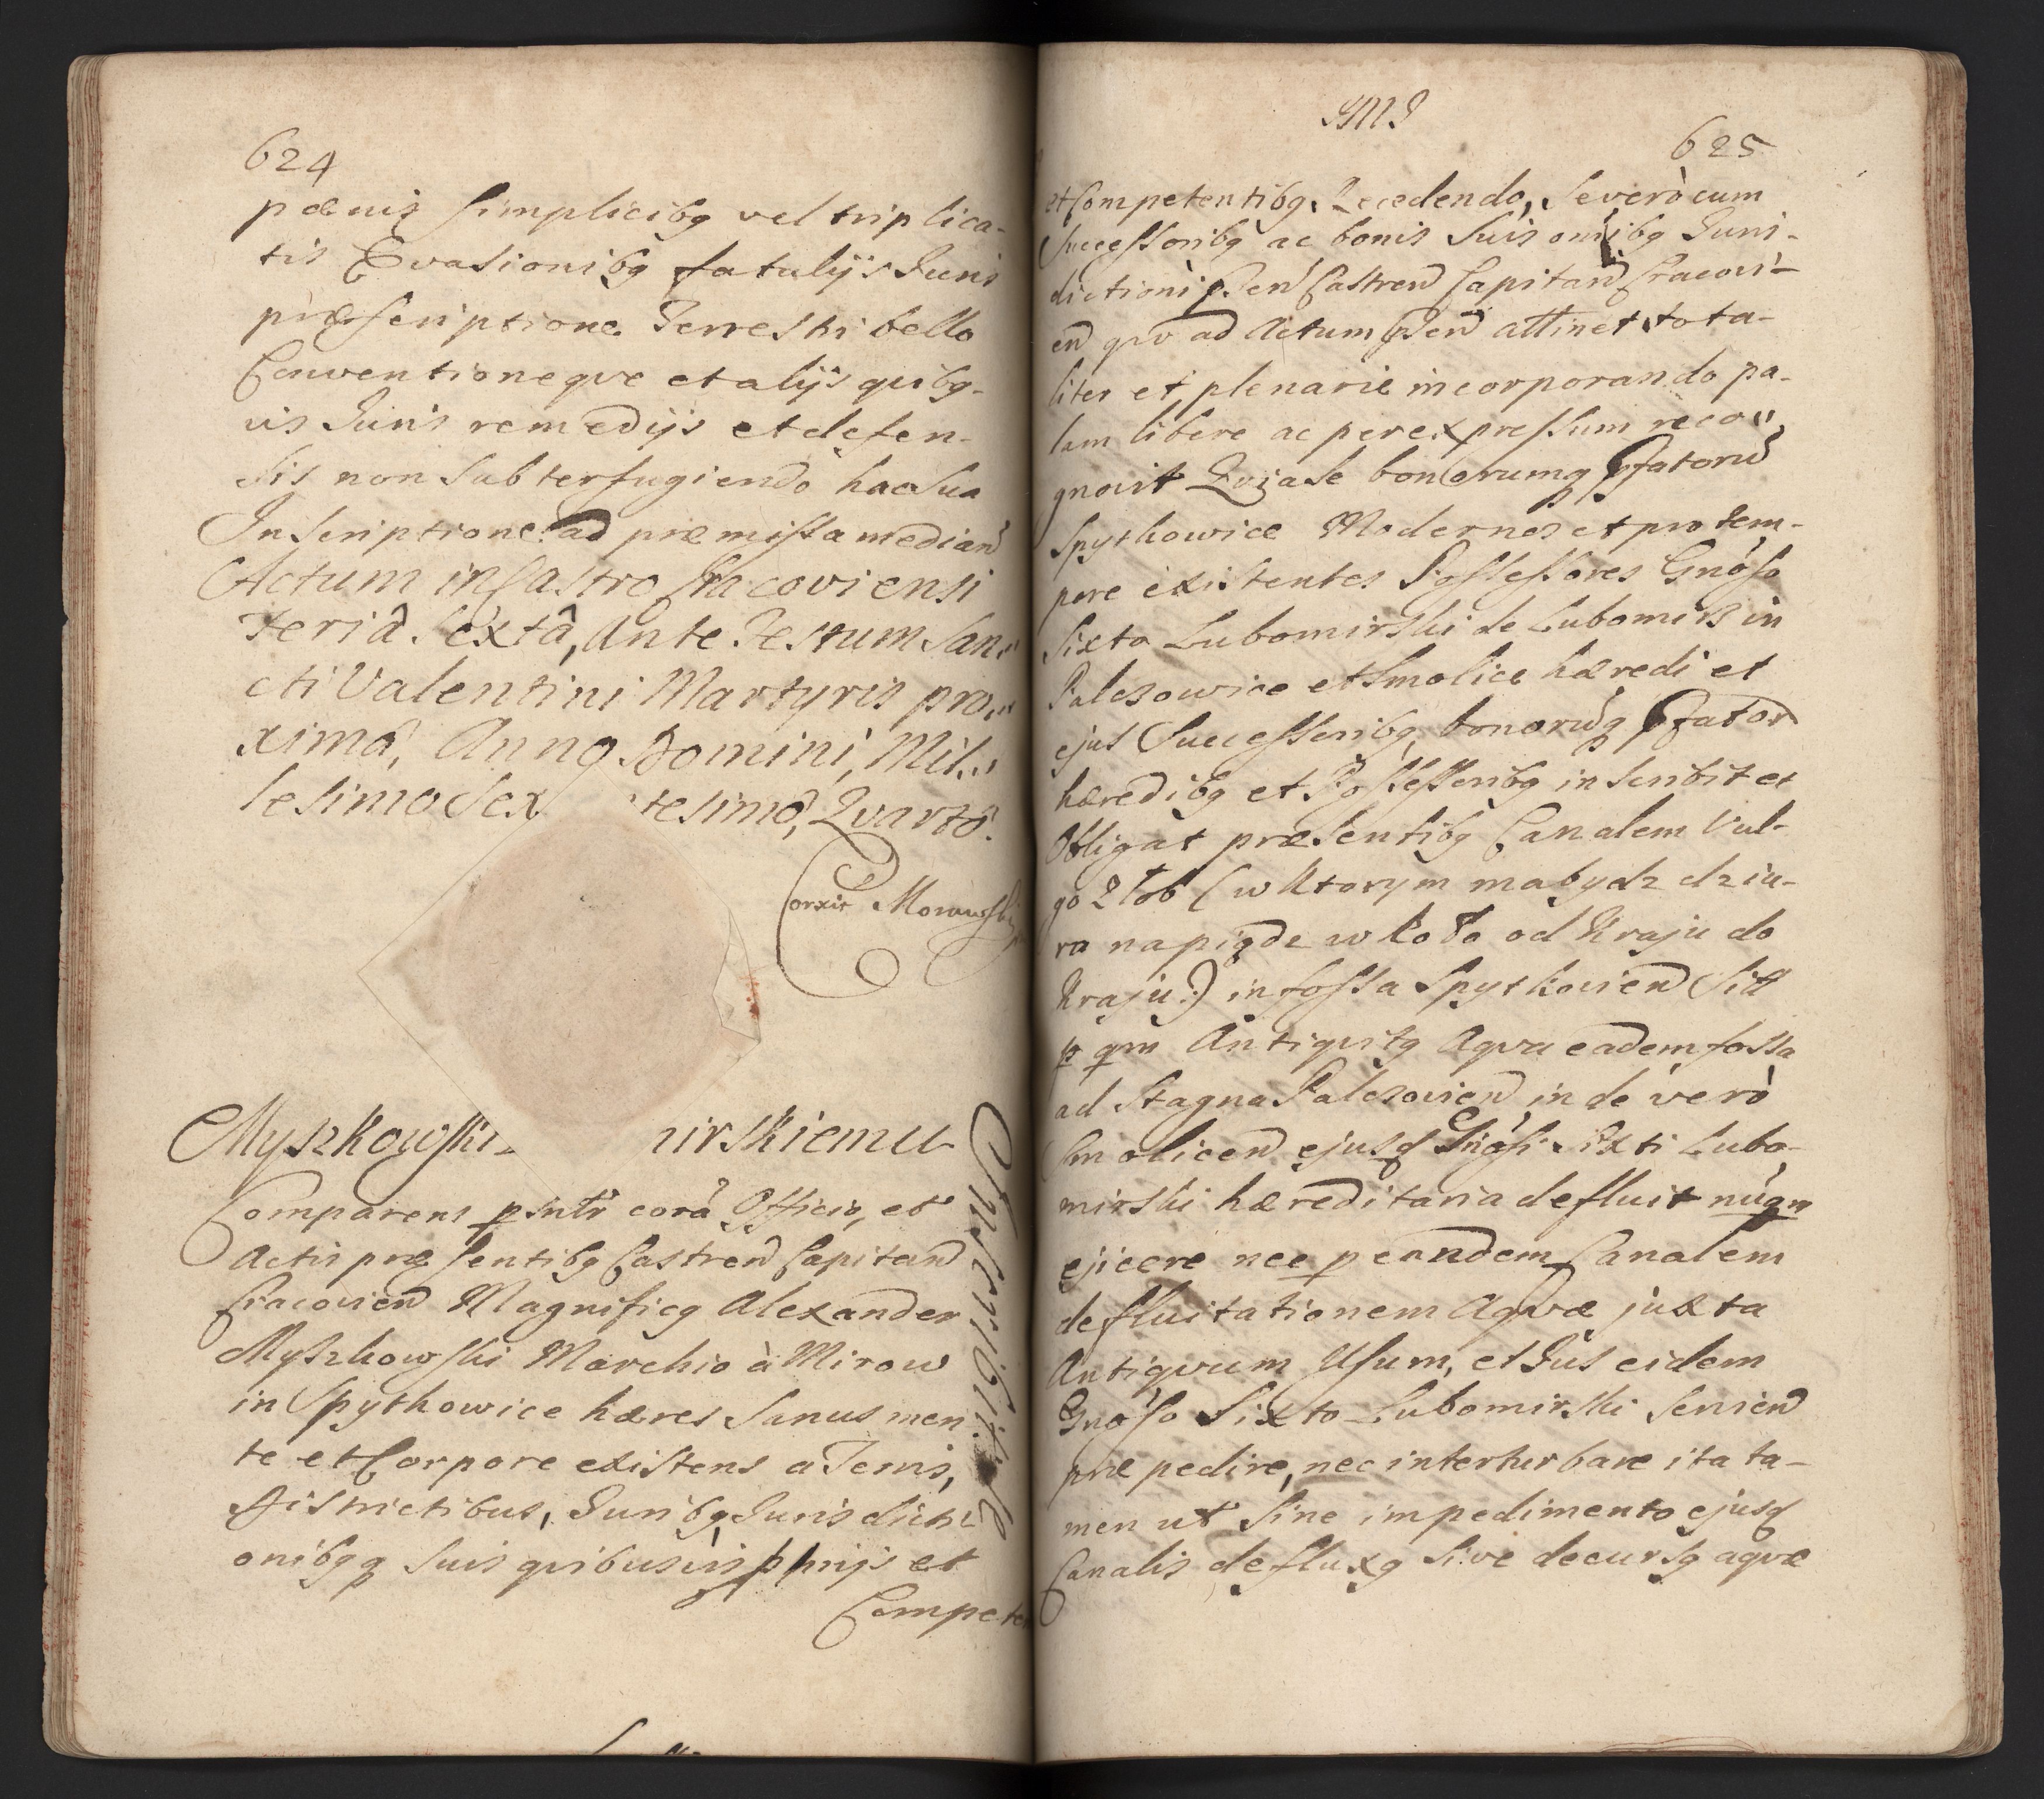 624
pœnis simplicibq vel triplica-
tis Evasionibq fatalijs Juris
præscriptione Terrestri bello
Conventioneqve et alijs quibq-
vis Juris remedijs et defen-
sis non subterfugiendo hac sua
Inscriptione ad præmissa median
Actum in Castro Cracoviensi
Feriâ Sextâ, Ante Festum San-
cti Valentini Martyris pro-
ximâ, Anno Domini, Mil-
lesimo Sex tesimô, Qvartô.
Corxit
Myszkowski nirskiemu
Inscribit se
Comparens psntr corã Officio, et
Actis præsentibq Castren Capitan
Cracovien Magnificq Alexander
Myszkowski Marchio à Mirow
in Spytkowice hæres sanus men
te et Corpore existens a Terris,
Districtibus, Juribq Jurisdicti-
onibqq suis qvibusvis pprijs et
Competen
JMJ
625
et Competentibq Recedendo, Se verò cum
Successoribq ac bonis Suis omibq Juris-
dictioni psen Castren Capitan Cracovi-
en qvo ad Actum psen attinet tota-
liter et plenarie incorporando pa-
lam libere ac per expressum reco-
gnovit Qvia se bonorumq pfatorũ
Spytkowice Modernos et pro tem-
pore existentes Possessores Gnoso
Sixto Lubomirski de Lubomirz in
Palczowice et Smolice hæredi et
ejus Successoribq bonorũq pfator
hæredibq et Possessoribq inscribit et
Obligat præsentibq Canalem Vul-
go Złob (w Ktorym ma bydz dziu-
ra na piądz w koło od Kraju do
Kraju:) in fossa Spytkovien Sitt
p qm Antiqvitq Aqva eadem fossa
ad Stagna Palczovien inde verò
Smolicen ejusd Gnosi Sixti Lubo-
mirski hæreditaria defluit nuqm
ejicere nec p eandem Canalem
defluitationem Aqvæ juxta
Antiqvum Usum, et Jus eidem
Gnoso Sixto Lubomirski Servien
præpedire, nec interturbare ita ta-
men ut sine impedimento ejusd
Canalis defluxq sive decursq aqvæ